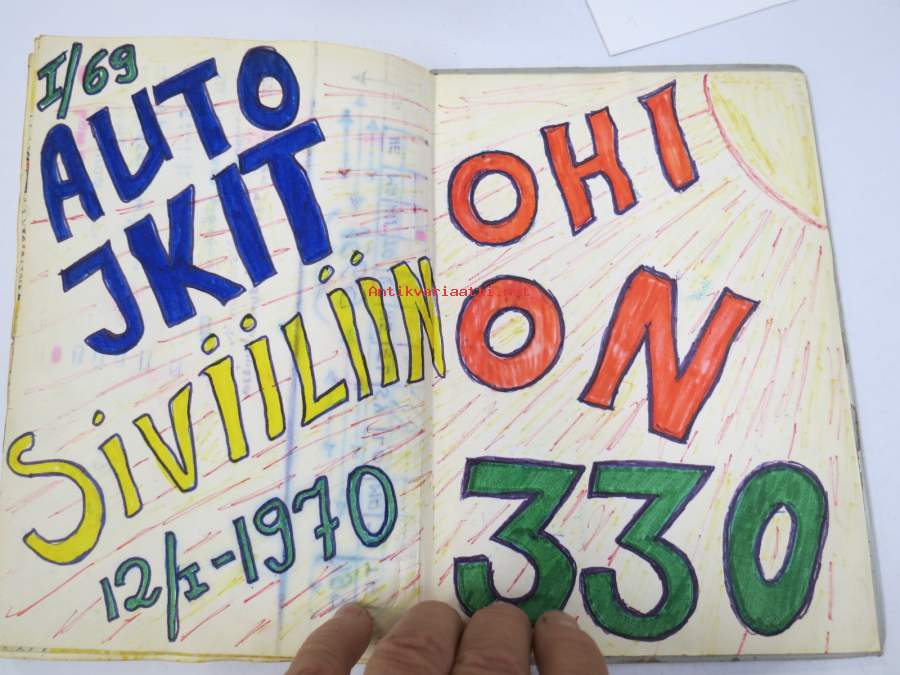 I/69
AUTO
JKIT
SiViiLiiN
12/I-1970
OHI
ON
330
Antikvariaatti.net